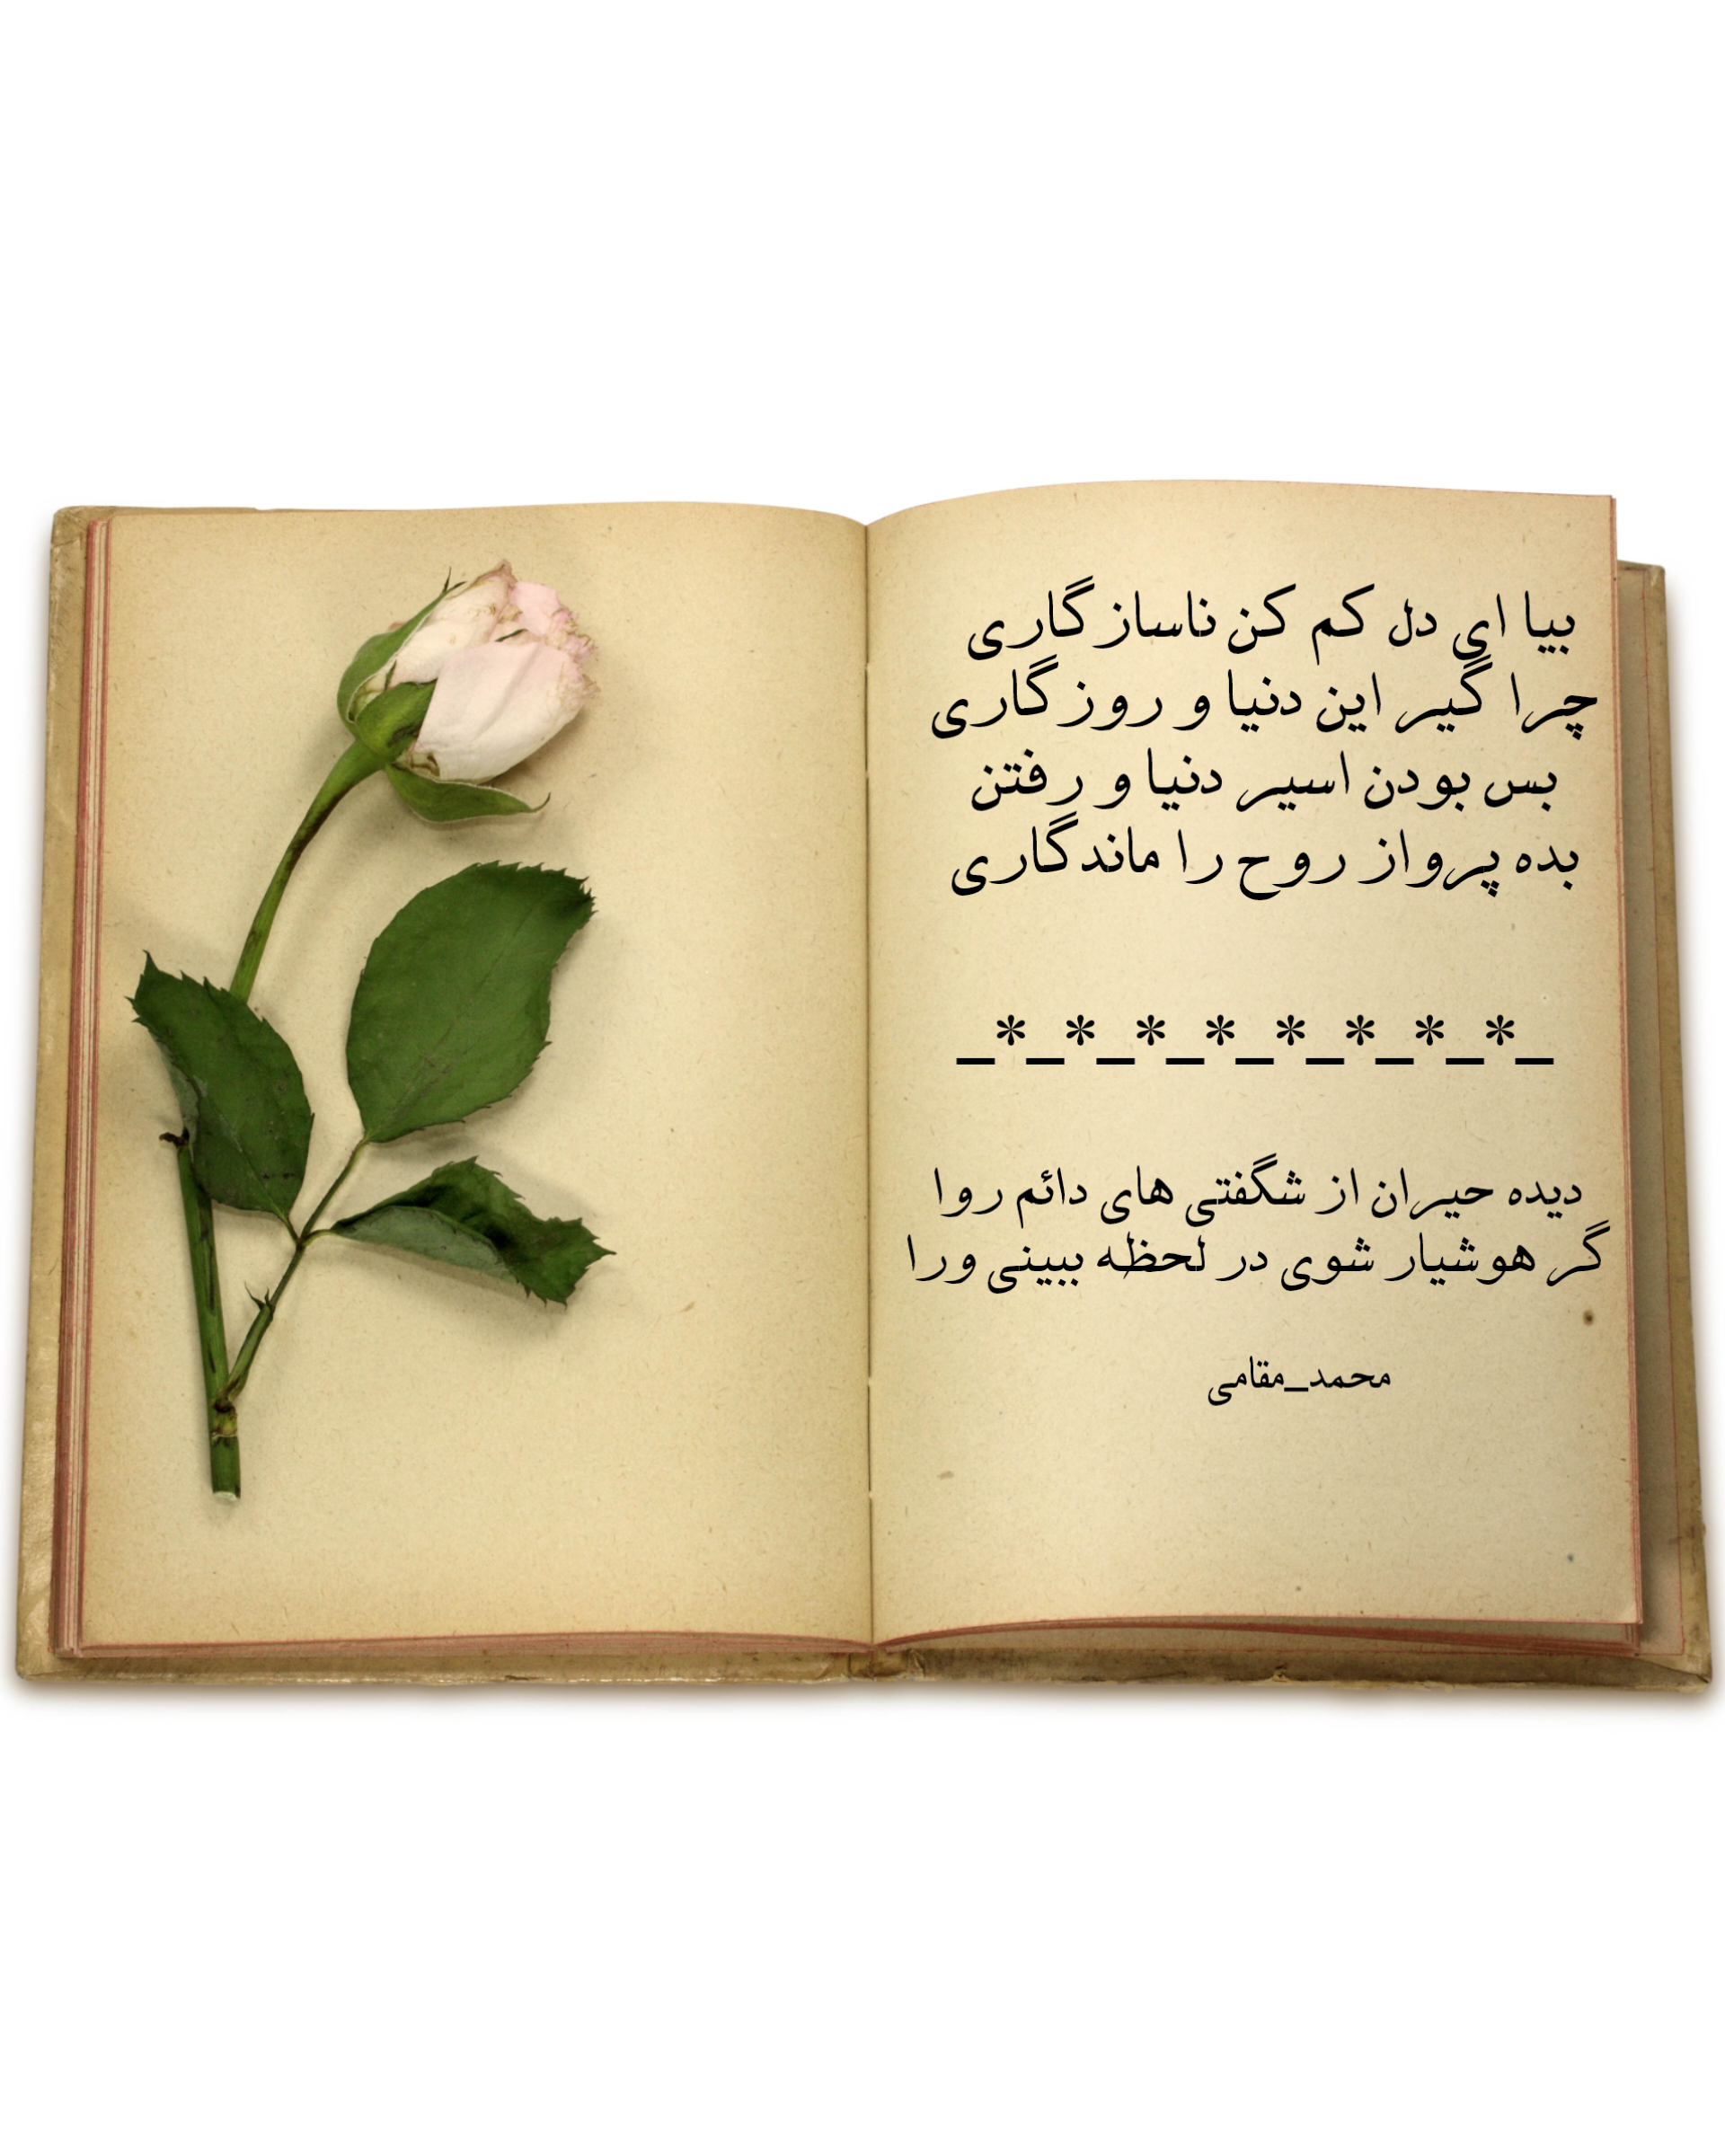 بیا ای دل کم کن ناسازگاری
چرا گیر این دنیا و روزگاری
بس بودن اسیر دنیا و رفتن
بده پرواز روح را ماندگاری
_*_*_*_*_*_*_*_*_
دیده حیران از شگفتی های دائم روا
گر هوشیار شوی در لحظه ببینی ورا
محمد_مقامی